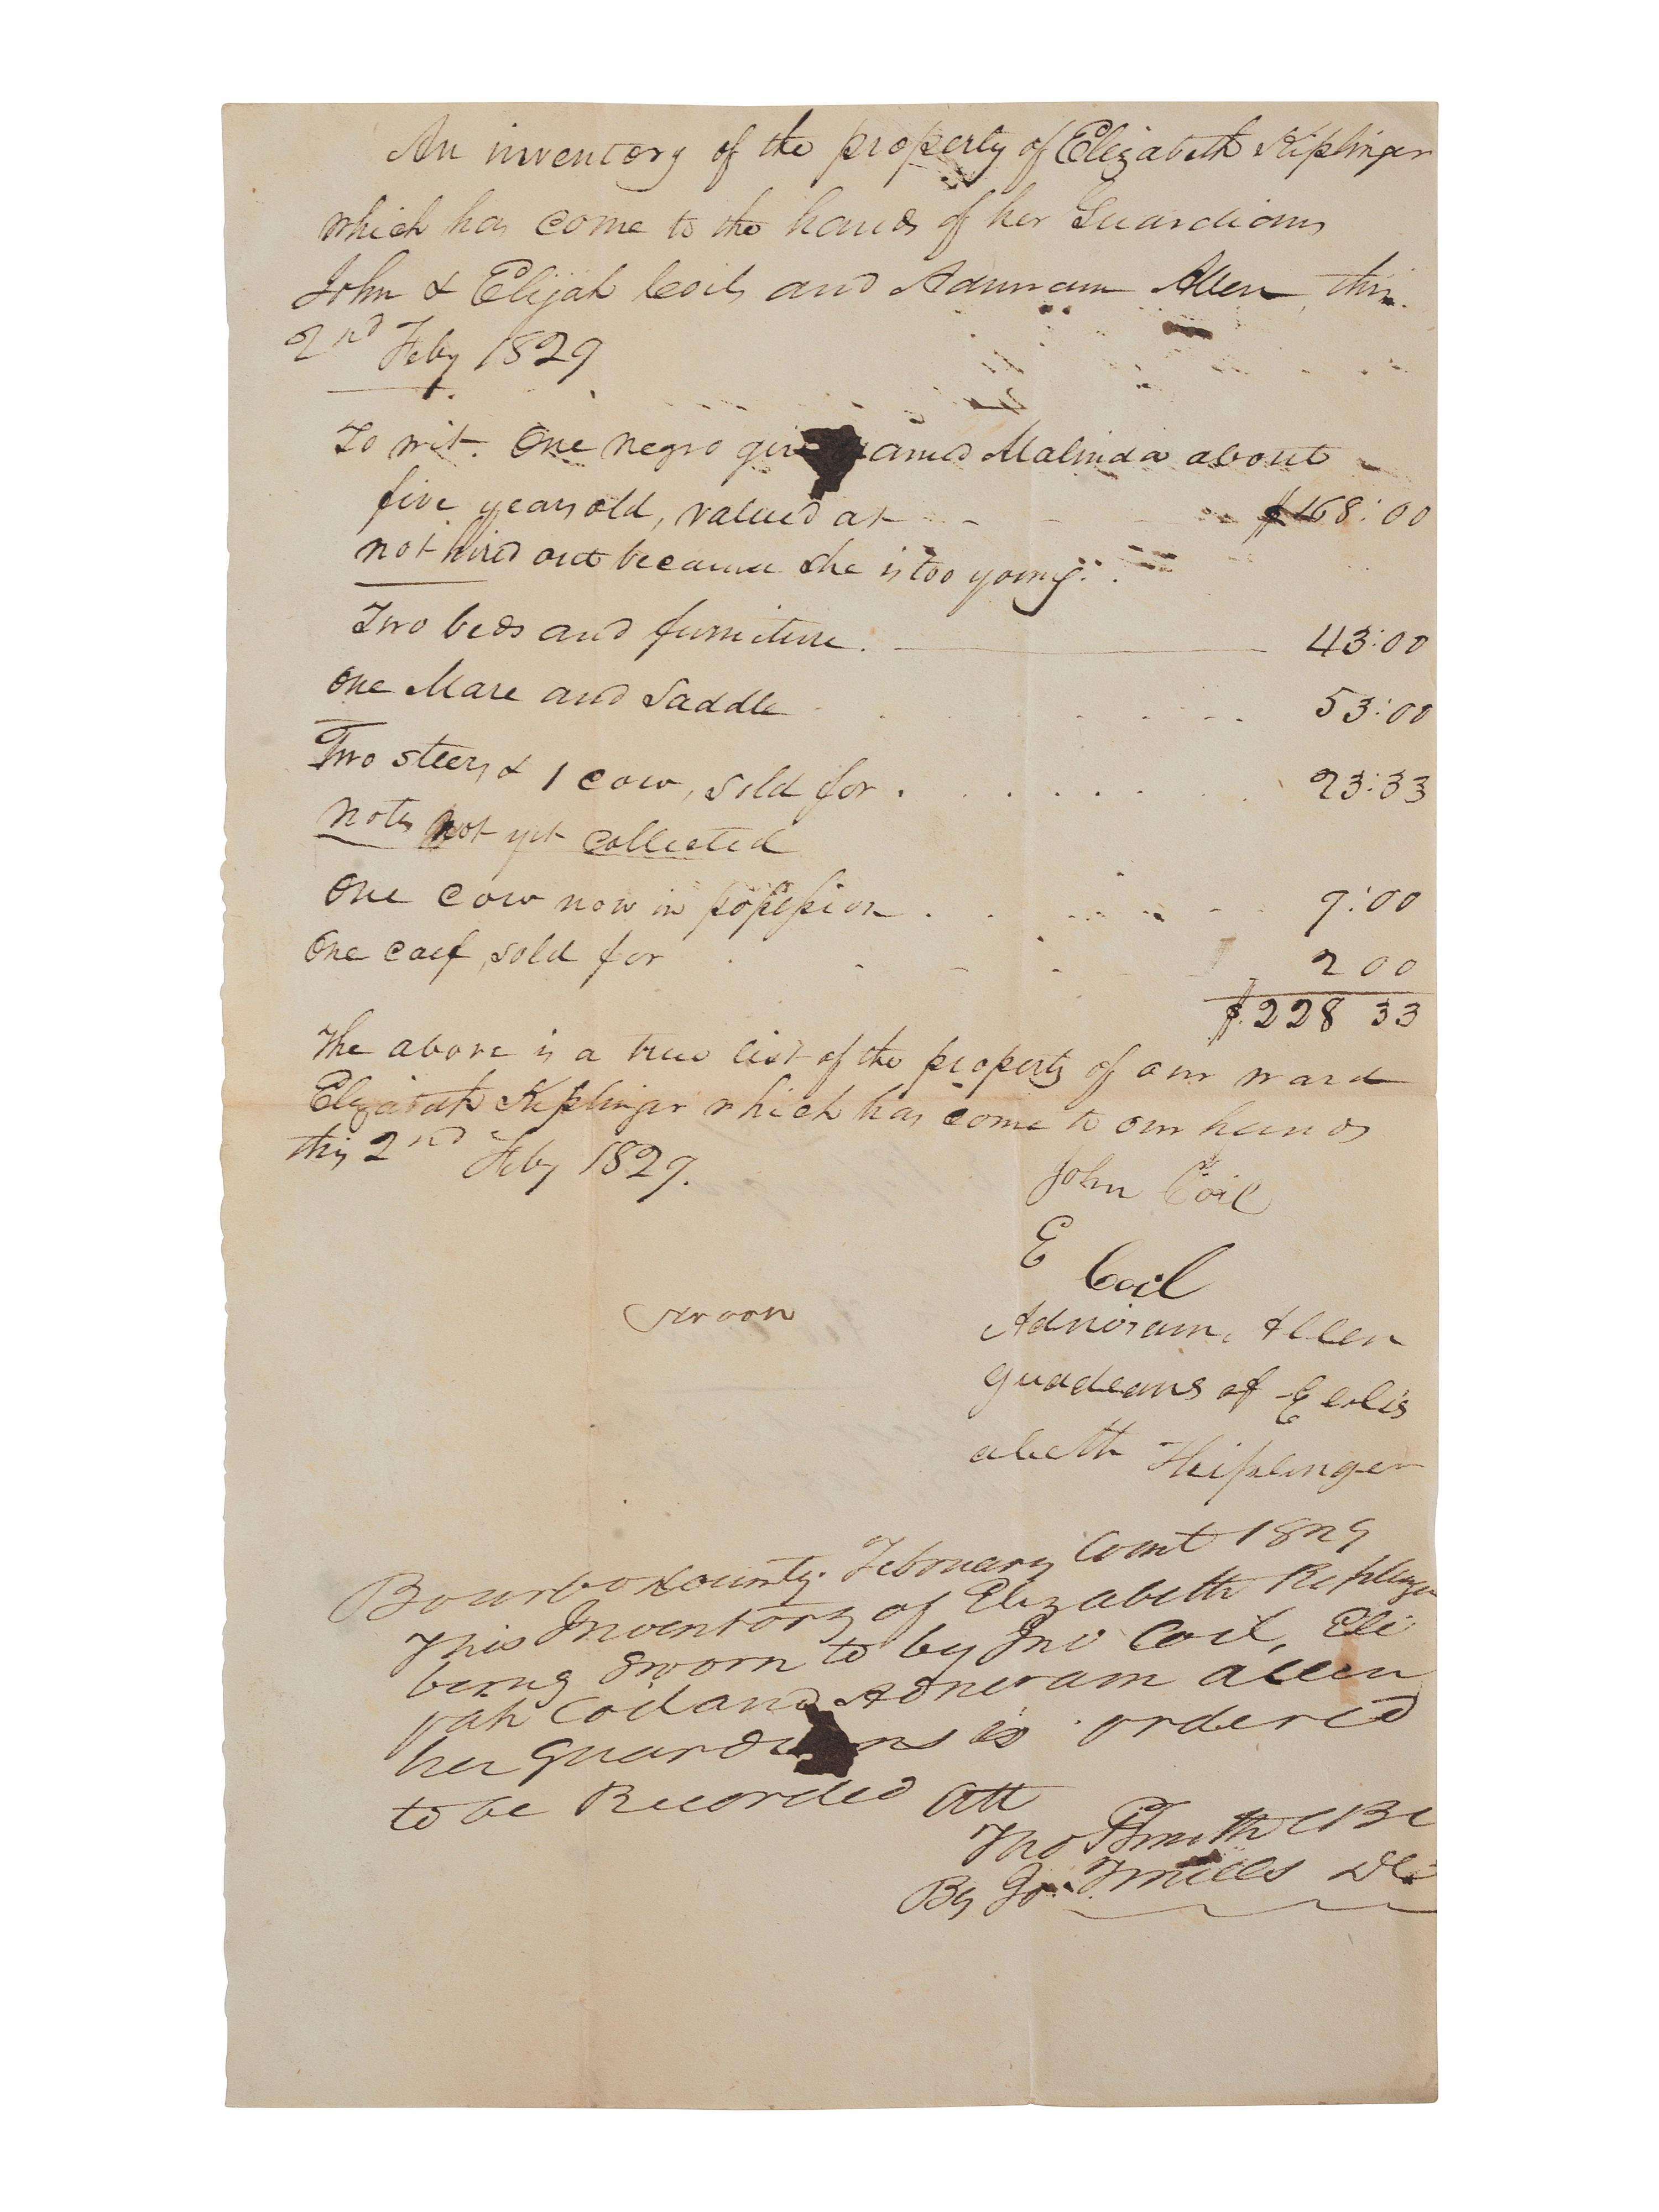 An inventory of the property of Elizabeth Kiplinger
which has come to the hands of her Guardians
John & Elijah Coils and Adniram Allen, this
2nd Feby 1829
To wit. One negro girl named Malinda about
five years old, valued at $168:00
not hired out because she is too young.
Two beds and furniture. 43:00
One Mare and Saddle 53:00
Two steers & 1 cow, sold for 23:33
notes not yet collected
One cow now in possession 7:00
One calf, sold for 2 00
$.228 33
The above is a true list of the property of our ward
Elizabeth Kiplinger which has come to our hands
this 2nd Feby 1829.
John Coil
E Coil
Sworn
Adniram, Allen
guadeans of Eelis
abeth Kiplinger
Bourbon County. February Court 1829
This Inventory of Elizabeth Kiplinger
being sworn to by Jno Coil, Eli
jah Coil and Adneram Allen
her guardians is ordered
to be Recorded Att
Tho P Smith CBC
By Jo. Mills DC